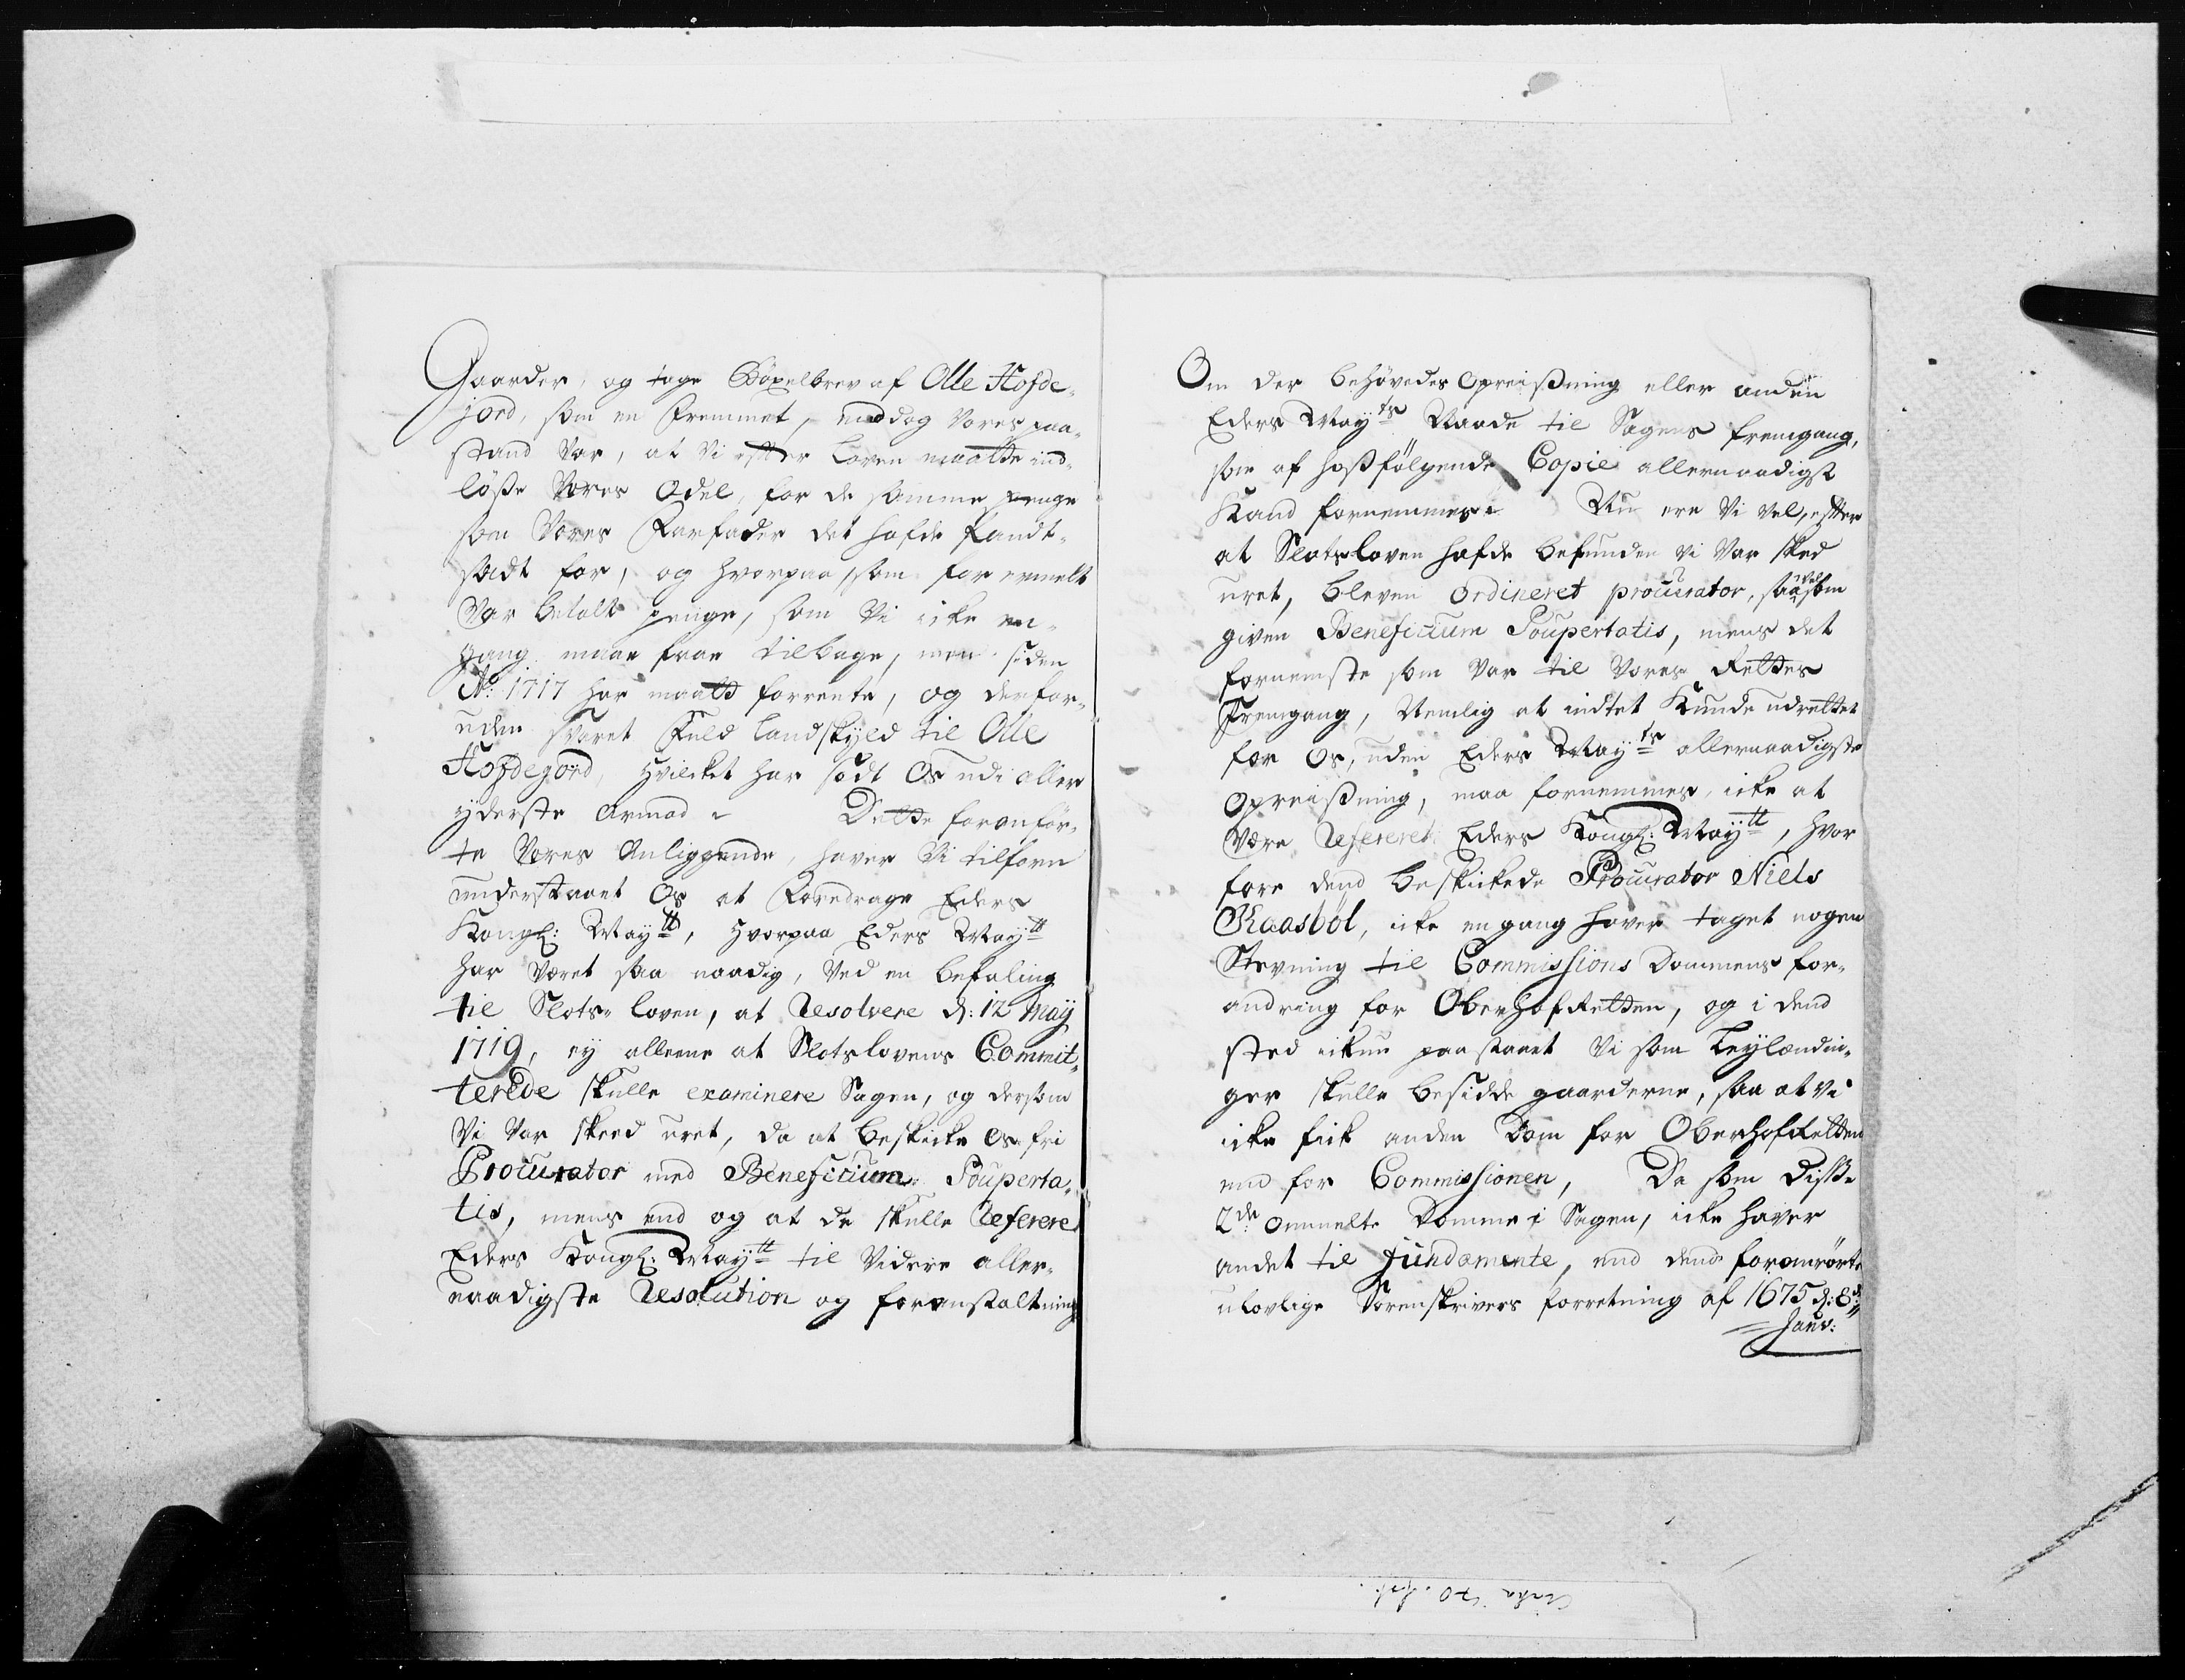 Gaarder, og tage Böxelbrev af Olle Hofde-
jord, som en Fremmet, end dog Vores paa-
stand Var, at Vi efter Loven maatte ind-
löße Vores Odel, for de samme penge
som Vores Farfader det hafde Pandt-
sadt for, og hvorpaa, som for ermelt
Var betalt penge, som Vi icke en-
gang maae faae tilbage, men siden
Ao: 1717 har maatt forrente, og derfor-
uden svaret Fuld Landskyld til Olle
Hofdejord, hvilcket har sadt Os udi aller
yderste Armod. Dette foranför-
te Vores Anliggende, haver Vi tilforn
understaaet Os at Foredrage Eders
Kongl: Maytt, hvorpaa Eders Maytt
har været saa naadig, Ved en befaling
til Slots-Loven, at Resolvere d: 12 May
1719, ey alleene at Slotslovens Commit-
terede skulle examinere Sagen, og dersom
Vi Var skeed uret, da at beskicke Os fri
Procurator med Beneficium Pauperta-
tis, mens end og at de skulle Referere
Eders Kongl: Maytt til Videre aller-
naadigste Resolution og foranstaltning
Om der behövedes Opreißning eller anden
Eders Mayts Naade til Sagens fremgang,
som af hoßfölgende Copie allernaadigst
Kand fornemmes. Nu ere Vi vel, efter
at Slotsloven hafde befunden Vi Var skeed
uret, bleven ordineret procurator, saavelsom
given Beneficium Paupertatis, mens det
fornemste som Var til Vores Rettes
Fremgang, Nemlig at indtet Kunde udrettet
for Os, uden Eders Mayts allernaadigste
Opreißning, maa fornemmes, icke at
Være Refereret Eders Kongl: Maytt, hvor
fore dend beskickede Procurator Niels
Raasböl, icke engang haver taget nogen
Stevning til Commissions Dommens for-
andring for Oberhof Retten, og i dend
sted ickun paastaaet Vi som Leylændin-
ger skulle besidde gaarderne, saa at vi
icke fick anden Dom for Oberhof Retten
end for Commissionen, Da som Disse
2de ommelte Domme i Sagen, icke haver
andet til Fundamente, end dend foranrörte
ulovlige Sorenskrivers forretning af 1675 d: 8de
Janv: